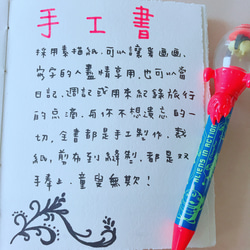 手工書
採用素描紙,可以讓著畫畫、
寫字的人盡情享用,也可以當
日記、週記或用來紀錄旅行
的點滴,與你不想遺忘的一
切,全書都是手工製作,裁
紙,剪布到縫製,都是双
手奉上,童叟無欺!
ALIENS IN ACTION